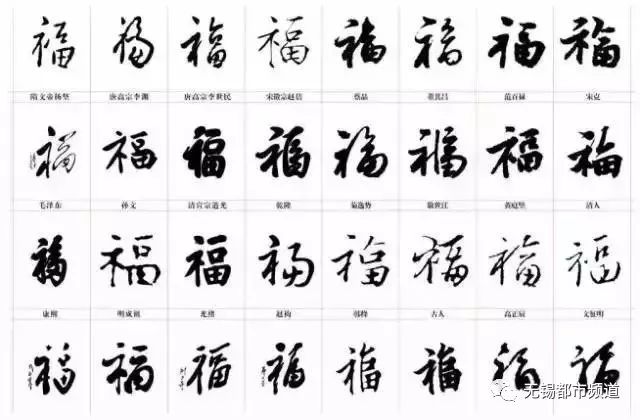 福 福 福 福 福 福 福 福
隋文帝杨坚 唐高宗李渊 唐高宗李世民 宋徽宗赵佶 董其昌 范百禄 宋克
福 福 福 福 福 福 福 福
毛泽东 孙文 清宣宗道光 乾隆 菊逸势 黄庭坚 清人
福 福 福 福 福 福 福 福
康熙 明成祖 光绪 赵构 古人 高正辰
福 福 福 福 福 福 福 福
无锡都市频道